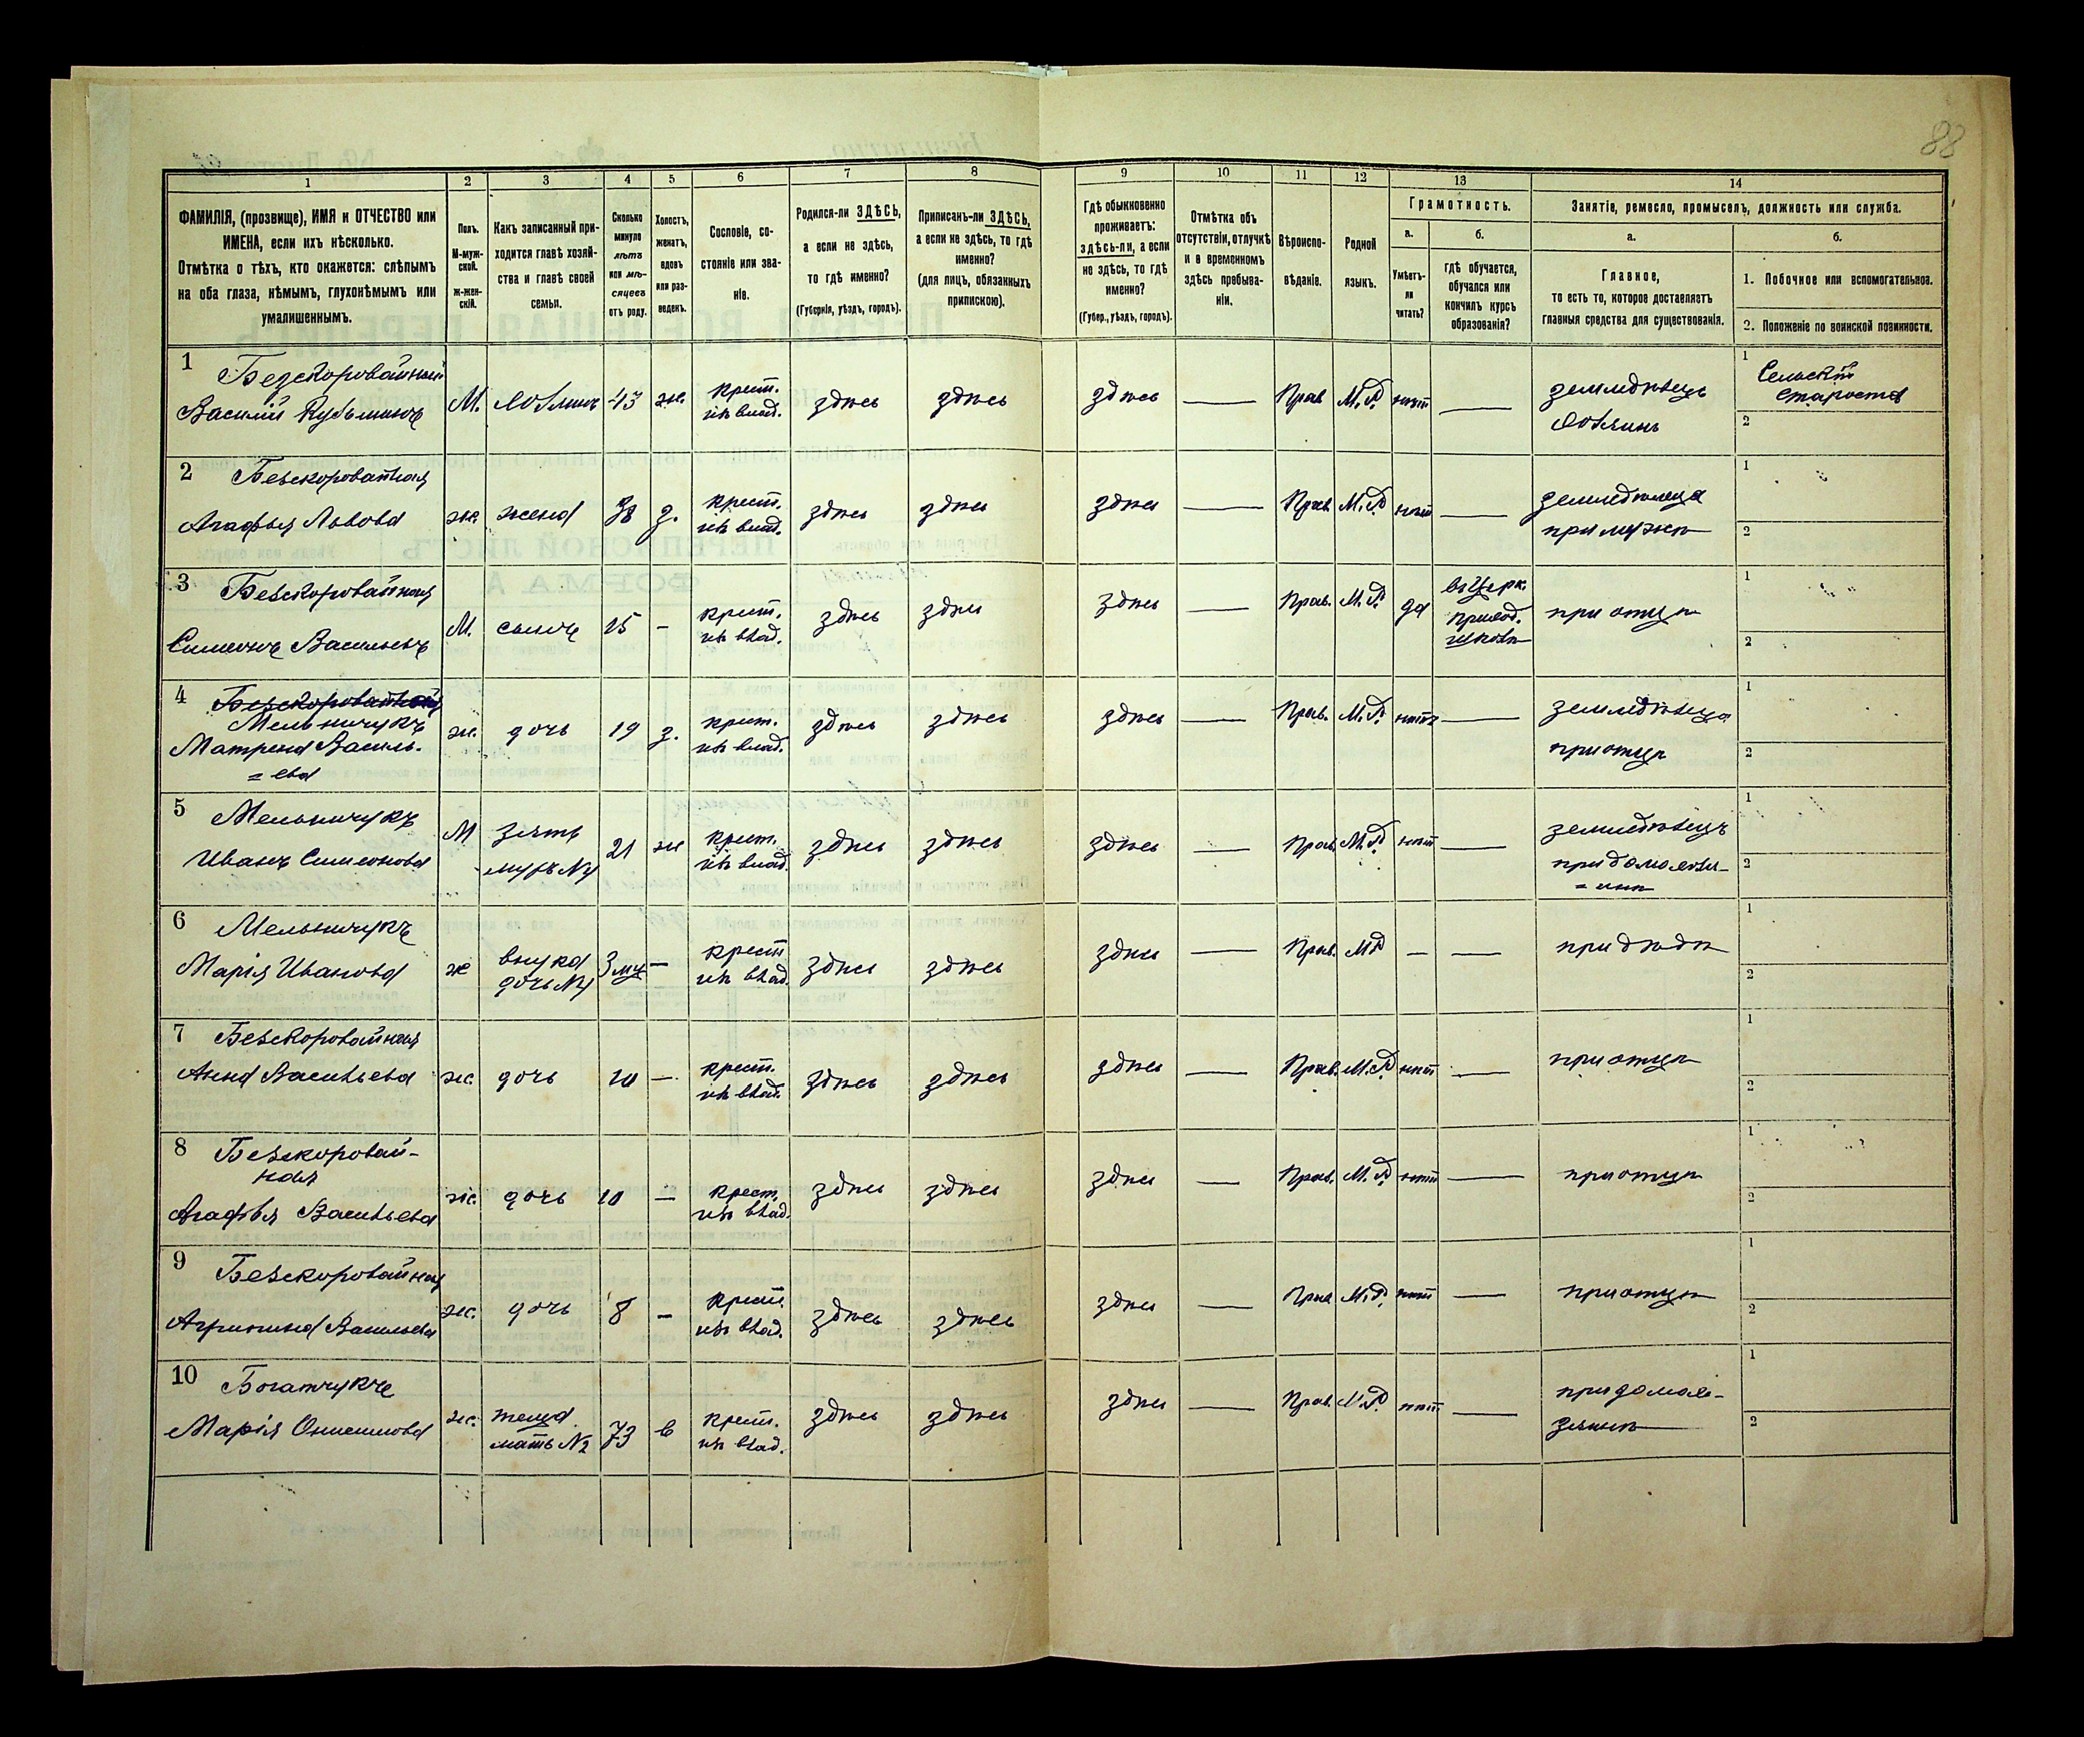 88
1 2 3 4 5 6 7 8 9 10 11 12 13 14
ФАМИЛІЯ, (прозвище), ИМЯ и ОТЧЕСТВО или
ИМЕНА, если ихъ нѣсколько.
Отмѣтка о тѣхъ, кто окажется: слѣпымъ
на оба глаза, нѣмымъ, глухонѣмымъ или
умалишеннымъ.
Полъ.
М-муж-
ской.
ж-жен-
скій.
Какъ записанный при-
ходится главѣ хозяй-
ства и главѣ своей
семьи.
Сколько
минуло
лѣтъ
или мѣ-
сяцевъ
отъ роду.
Холостъ,
женатъ,
вдовъ
или раз-
веденъ.
Сословіе, со-
стояніе или зва-
ніе.
Родился-ли ЗДѢСЬ,
а если не здѣсь,
то гдѣ именно?
(Губернія, уѣздъ, городъ).
Приписанъ-ли ЗДѢСЬ,
а если не здѣсь, то гдѣ
именно?
(для лицъ, обязанныхъ
припискою).
Гдѣ обыкновенно
проживаетъ:
здѣсь-ли, а если
не здѣсь, то гдѣ
именно?
(Губер., уѣздъ, городъ).
Отмѣтка объ
отсутствіи, отлучкѣ
и о временномъ
здѣсь пребыва-
ніи.
Вѣроиспо-
вѣданіе.
Родной
языкъ.
Грамотность.
а.
Умѣетъ-
ли
читать?
б.
гдѣ обучается,
обучался или
кончилъ курсъ
образованія?
Занятіе, ремесло, промыселъ, должность или служба.
а.
Главное,
то есть то, которое доставляетъ
главныя средства для существованія.
б.
1. Побочное или вспомогательное.
2. Положеніе по воинской повинности.
1 Безкоровайный
Василій Кузьминъ М. хозяинъ 43 ж. крест. изъ влад. здѣсь здѣсь здѣсь — Прав М.Р. нѣтъ — земледѣлецъ хозяинъ 1 Сельскій староста 2
2 Безкоровайная
Агафья Львова ж. жена 38 з. крест. изъ влад. здѣсь здѣсь здѣсь — Прав М.Р нѣтъ — земледѣлица при мужѣ 1 2
3 Безкоровайная
Симеонъ Васильевъ М. сынъ 15 – крест. изъ влад. здѣсь здѣсь здѣсь — Прав. М.Р. да въ Церк. приход. школѣ при отцѣ 1 2
4 Безкоровайная
Мельничукъ
Матрена Василь-
=ева ж. дочь 19 з. крест. изъ влад. здѣсь здѣсь здѣсь — Прав. М.Р. нѣтъ — земледѣлица при отцѣ 1 2
5 Мельничукъ
Иванъ Симеонова М зять мужъ №4 21 ж крест. изъ влад. здѣсь здѣсь здѣсь — Прав. М.Р нѣтъ — земледѣлецъ при домохозя-
=инѣ 1 2
6 Мельничукъ
Марія Иванова ж внука дочь №4 3 мц — крест изъ влад. здѣсь здѣсь здѣсь — Прав. МР — — при дѣдѣ 1 2
7 Безкоровайная
Анна Васильева ж. дочь 10 — крест. изъ влад. здѣсь здѣсь здѣсь — Прав. М.Р. нѣтъ — при отцѣ 1 2
8 Безкоровай-
ная
Агафья Васильева ж. дочь 10 — крест. изъ влад. здѣсь здѣсь здѣсь — Прав. М.Р. нѣтъ — при отцѣ 1 2
9 Безкоровайная
Агрипина Васильева ж. дочь 8 – крест. изъ влад. здѣсь здѣсь здѣсь — Прав М.Р. нѣтъ — при отцѣ 1 2
10 Богатчукъ
Марія ж. теща мать №2 73 в крест. изъ влад. здѣсь здѣсь здѣсь — Прав. М.Р. нѣтъ — при домохо-
зяинѣ 1 2